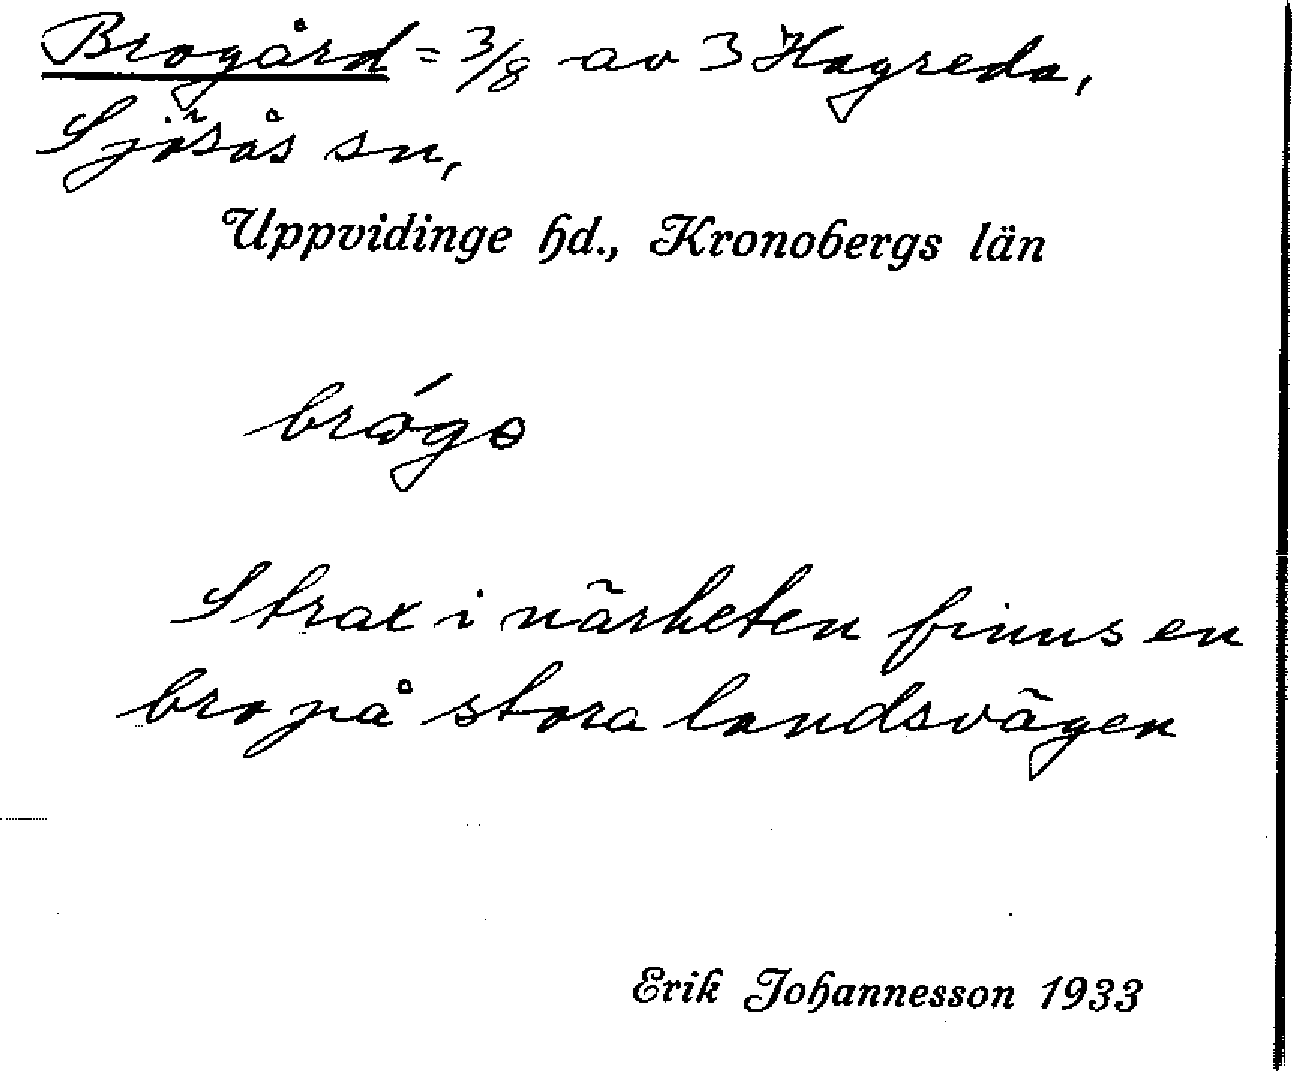 Brogård = 3/8 av 3 Hagreda,
Sjösås sn,
Uppvidinge hd., Kronobergs län
Strax i närheten finns en
bro på stora landsvägen
Erik Johannesson 1933